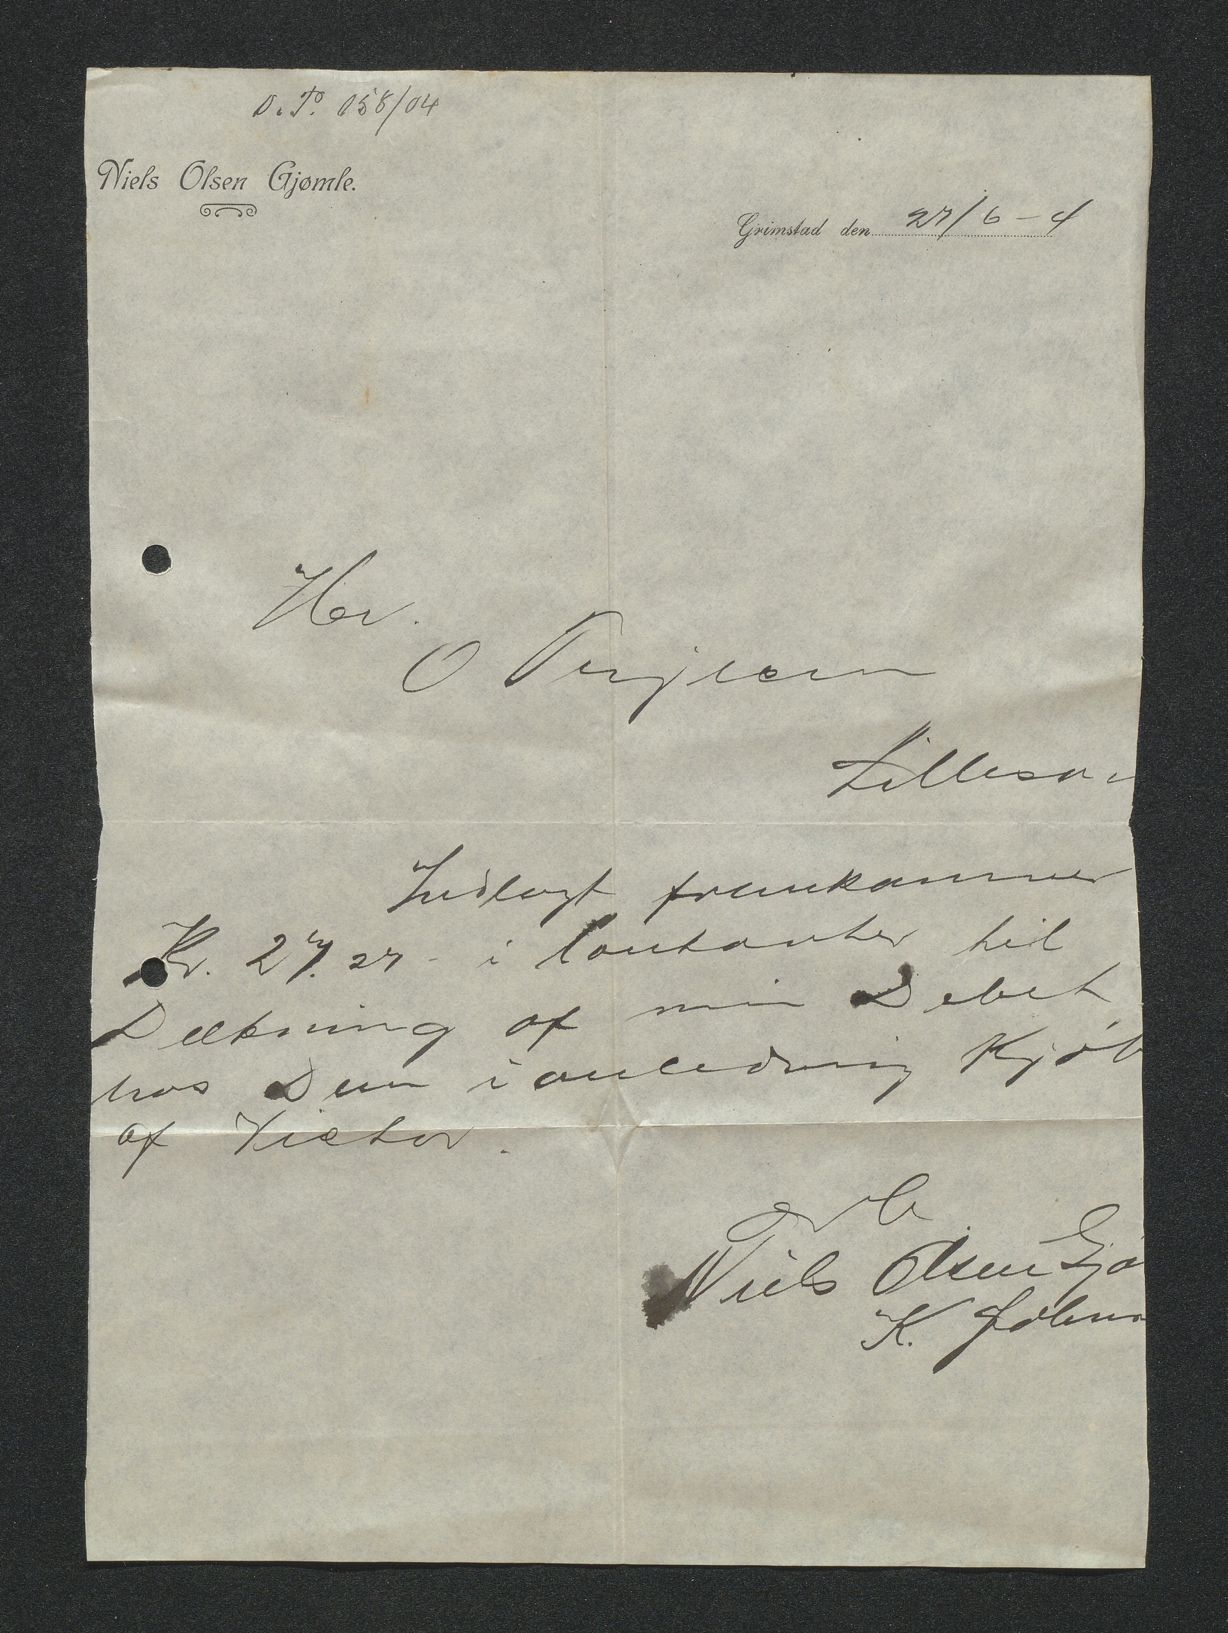 D. P. 058/04
Niels Olsen Gjømle.
Grimstad den 27/6-4
Hr.
O Terjesen
Lillesa
Indlagt fremkommer
Kr. 27.27- i Contanter til
Dækning af min Debet
hos Dem i anledning Kjøb
af Victor.
Niels Olsen Gjø
K.